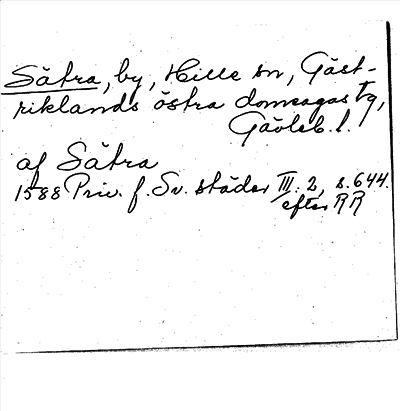 Sätra, by, Hille sn, Gäst-
riklands östra domsagas tg,
Gävleb. l.
af Sätra
1588 Priv. f. Sv. städer III: 2, s. 644.
efter RR